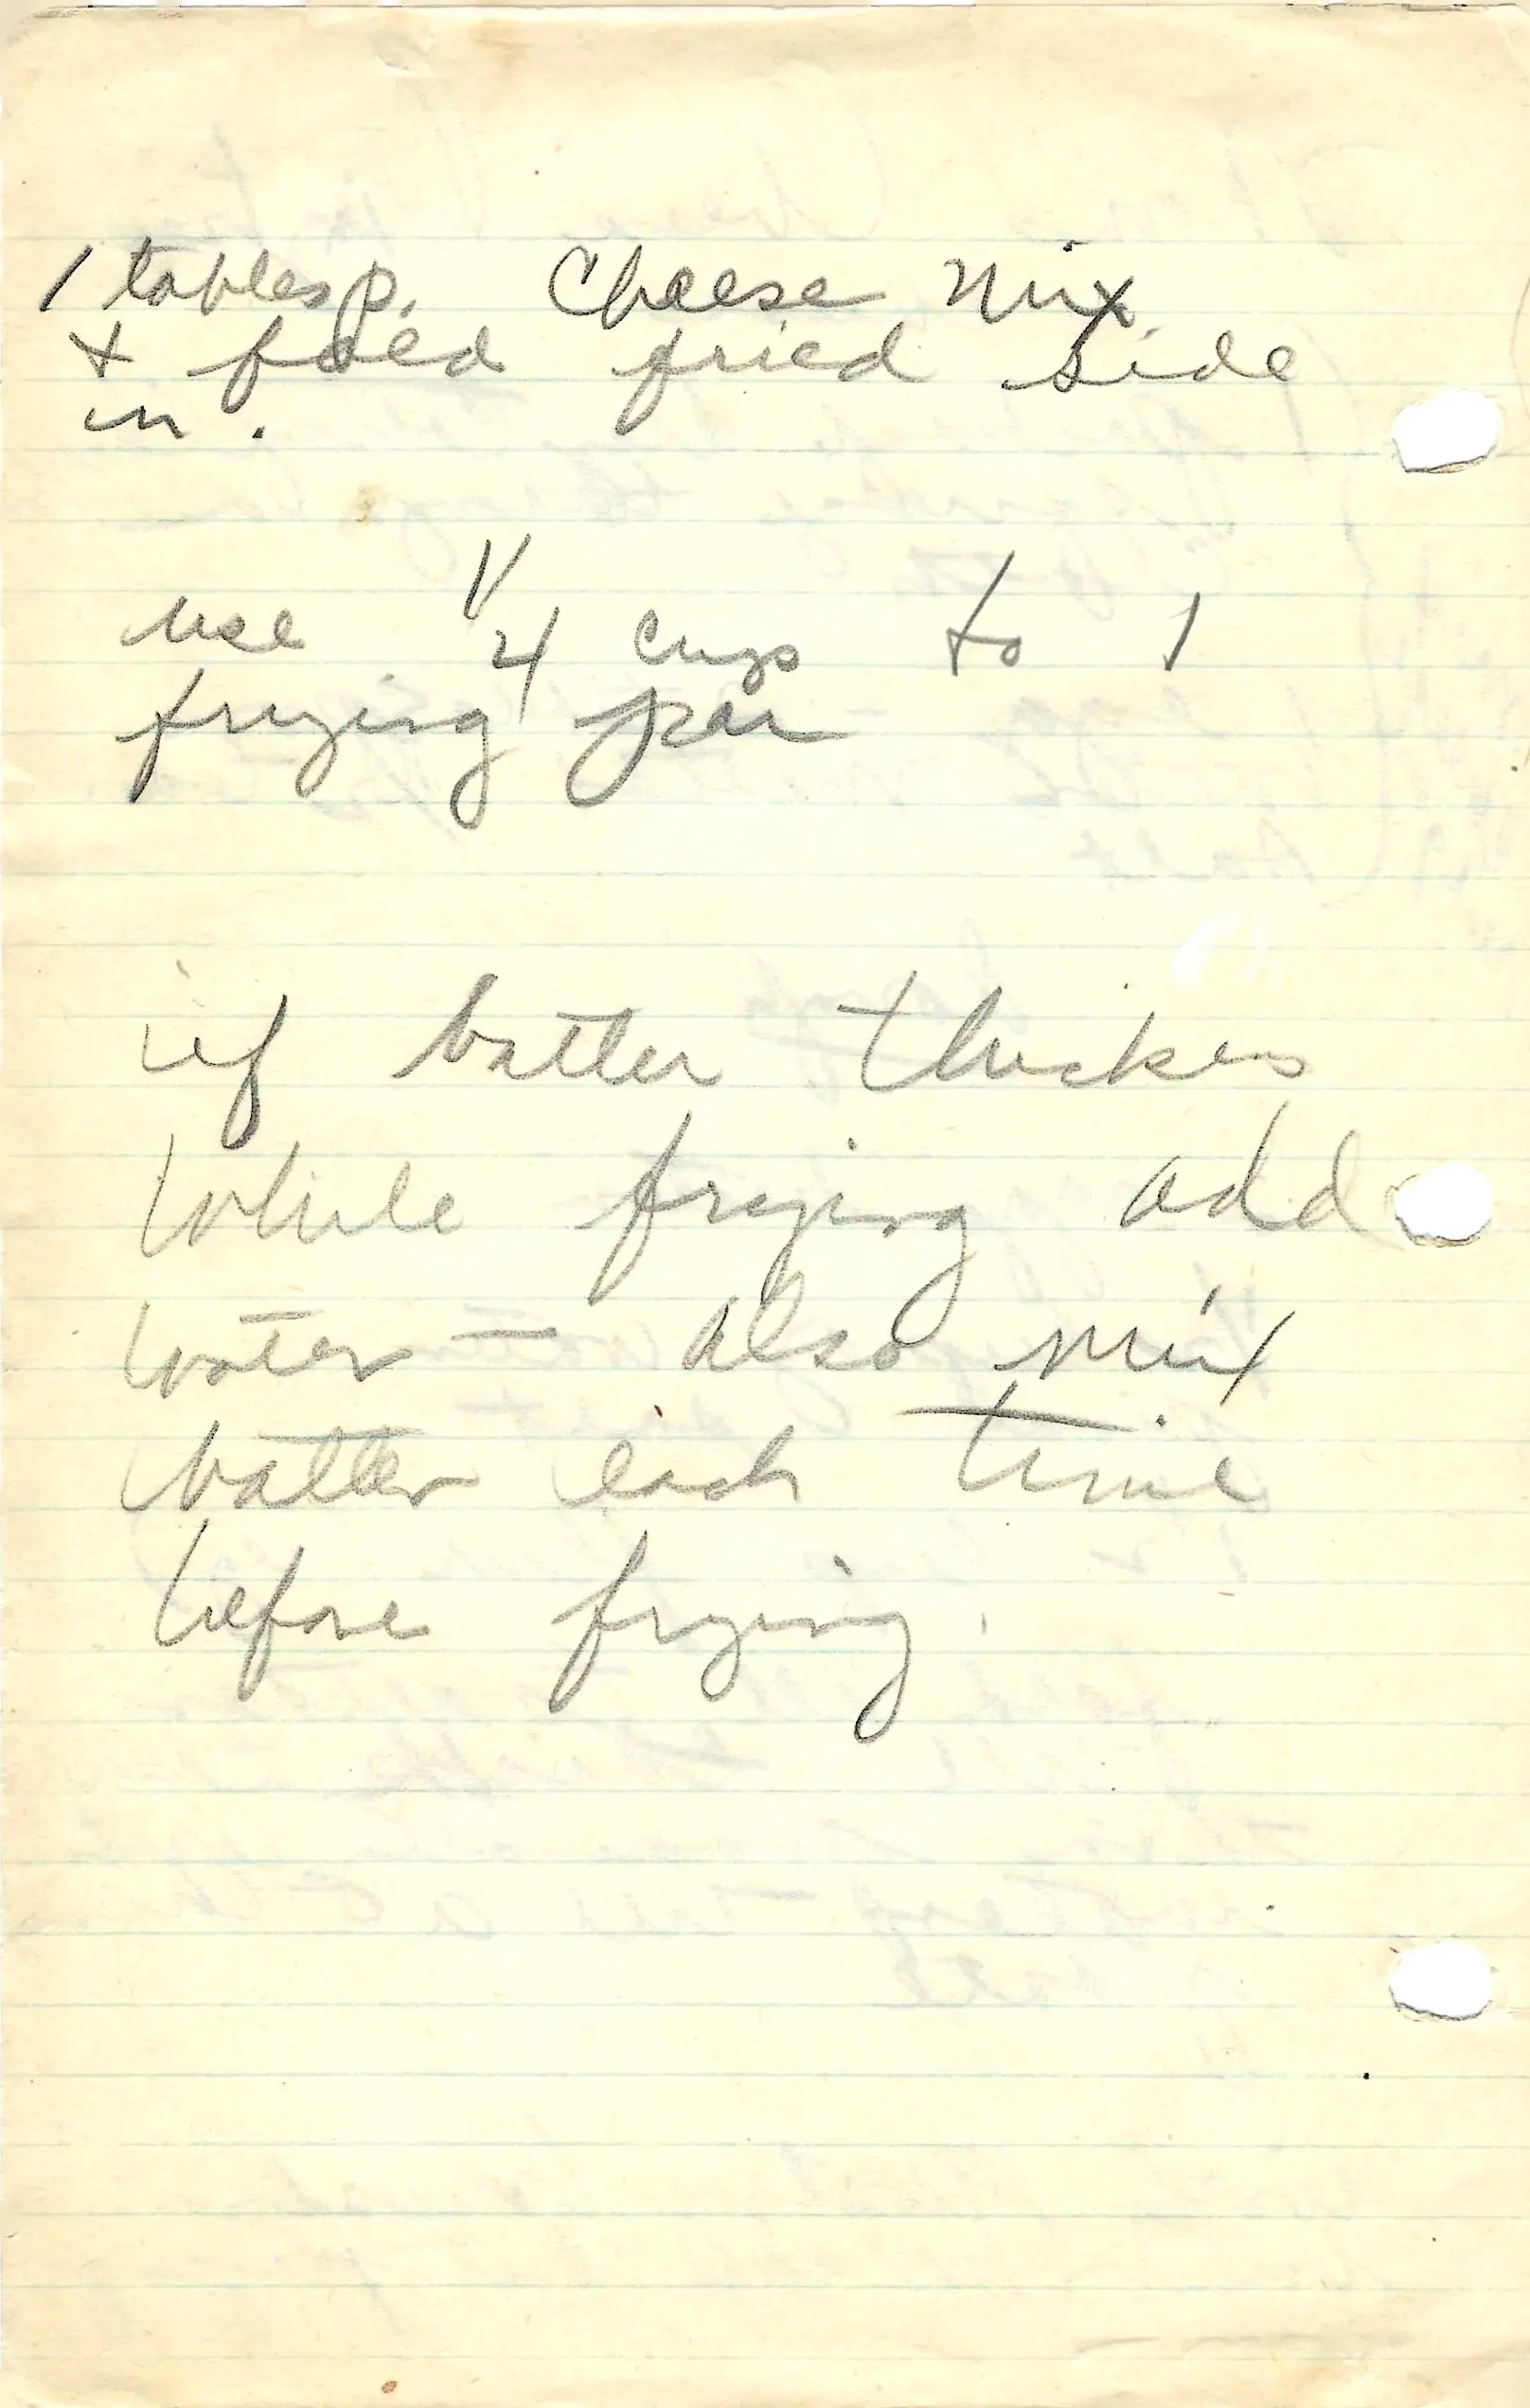 1 tablesp. Cheese Mix
+ fold fried side
in.
use 1/4 cup to 1
frying pan
if batter thickens
while frying add
water — also mix
batter each time
before frying.